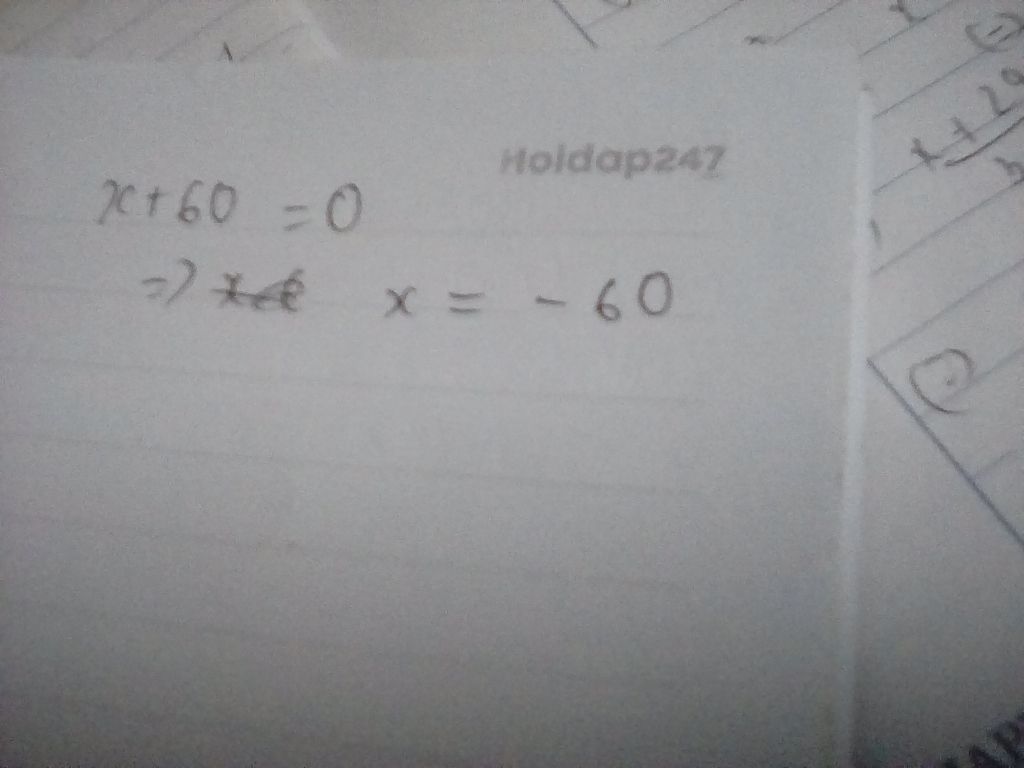 Hoidap247
x+60 =0
=> x = -60
x + 29